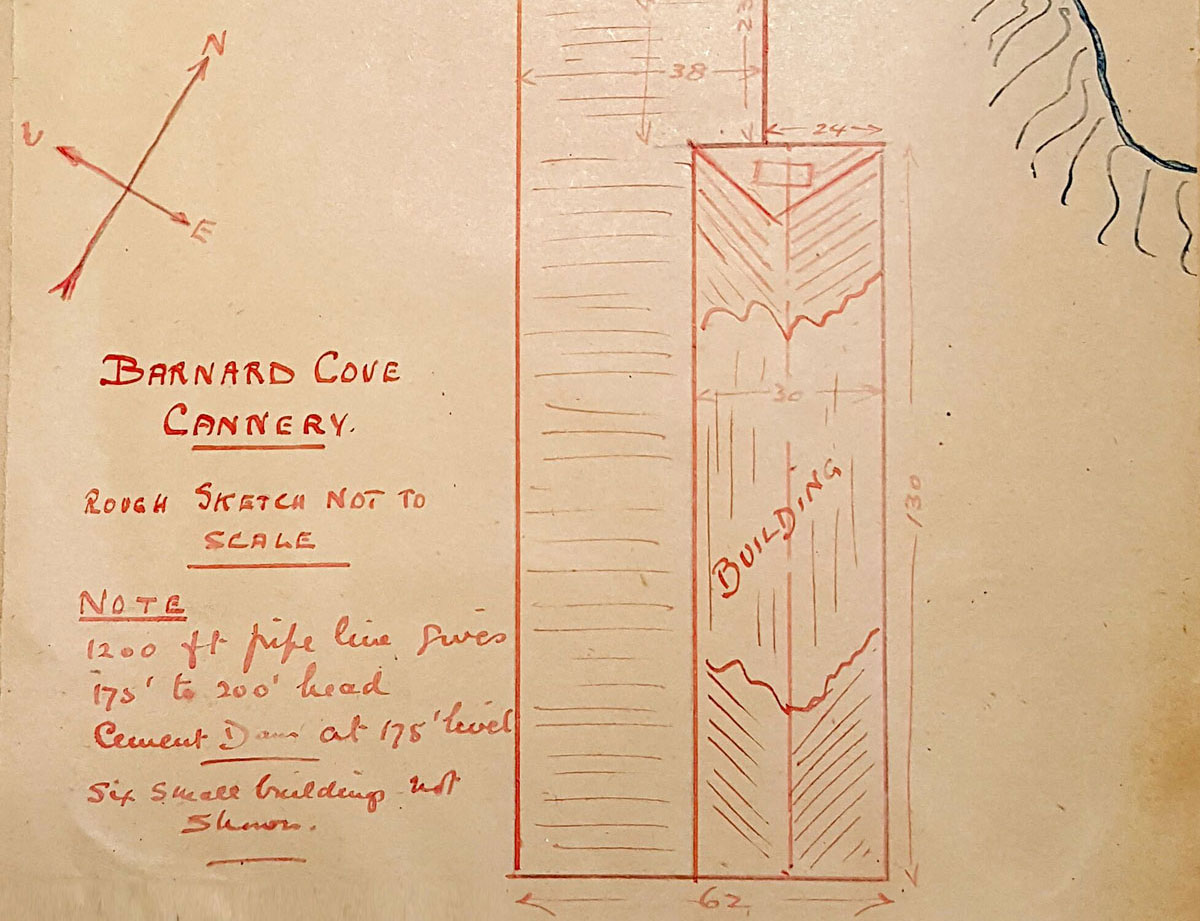 23
38
24
N
W
E
30
130
BUILDING
62
BARNARD COVE
CANNERY.
ROUGH SKETCH NOT TO
SCALE
NOTE
1200 ft pipe line gives
175' to 200' head
Cement Dam at 175' level
Six small buildings not
shown.